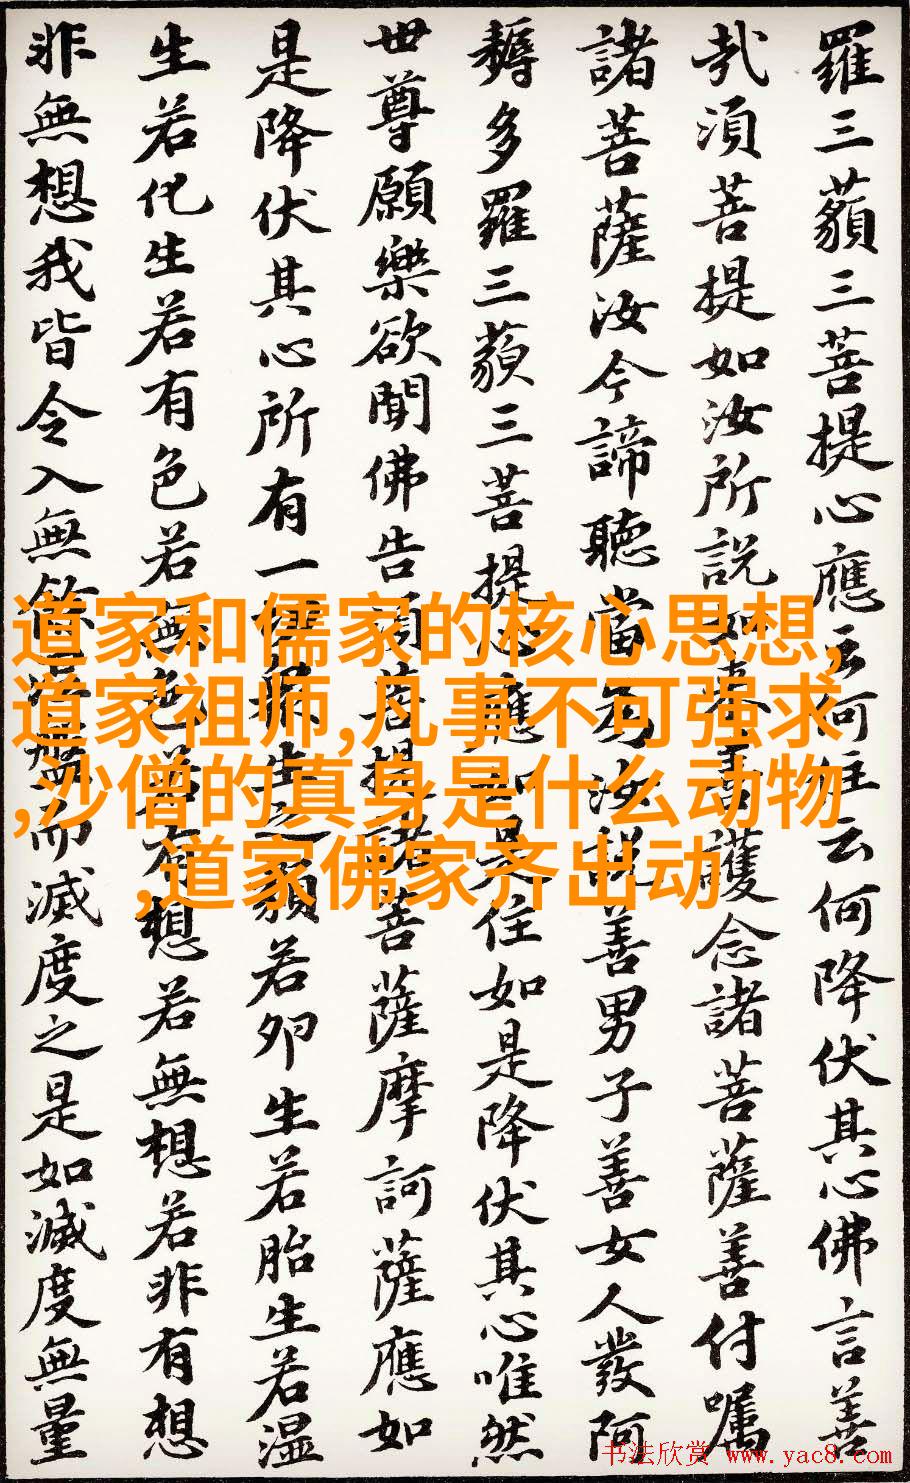 羅三藐三菩提心應云何住云何降伏其心佛言善
哉須菩提如汝所説如来善護念諸菩薩善付囑
諸菩薩汝今諦聽當為汝説善男子善女人發阿
耨多羅三藐三菩提心應如是住如是降伏其心唯然
世尊願樂欲聞佛告須菩提諸菩薩摩訶薩應如
是降伏其心所有一切眾生之類若卵生若胎生若湿
生若化生若有色若無色若有想若無想若非有想
非無想我皆令入無餘涅槃而滅度之是如滅度無量
道家和儒家的核心思想,
道家祖师,凡事不可强求
,沙僧的真身是什么动物
,道家佛家齐出动
书法欣赏 www.yac8.com